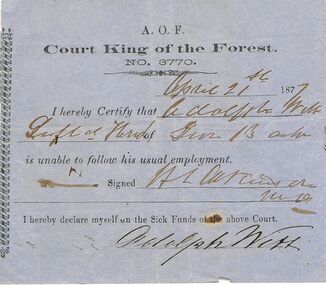 A. O. F.
Court King of the Forest.
NO. 3770.
April 21st 187
I hereby Certify that Adolph Witt
of
is unable to follow his usual employment.
Signed H L Atkinson
I hereby declare myself on the Sick Funds of the above Court.
Adolph Witt